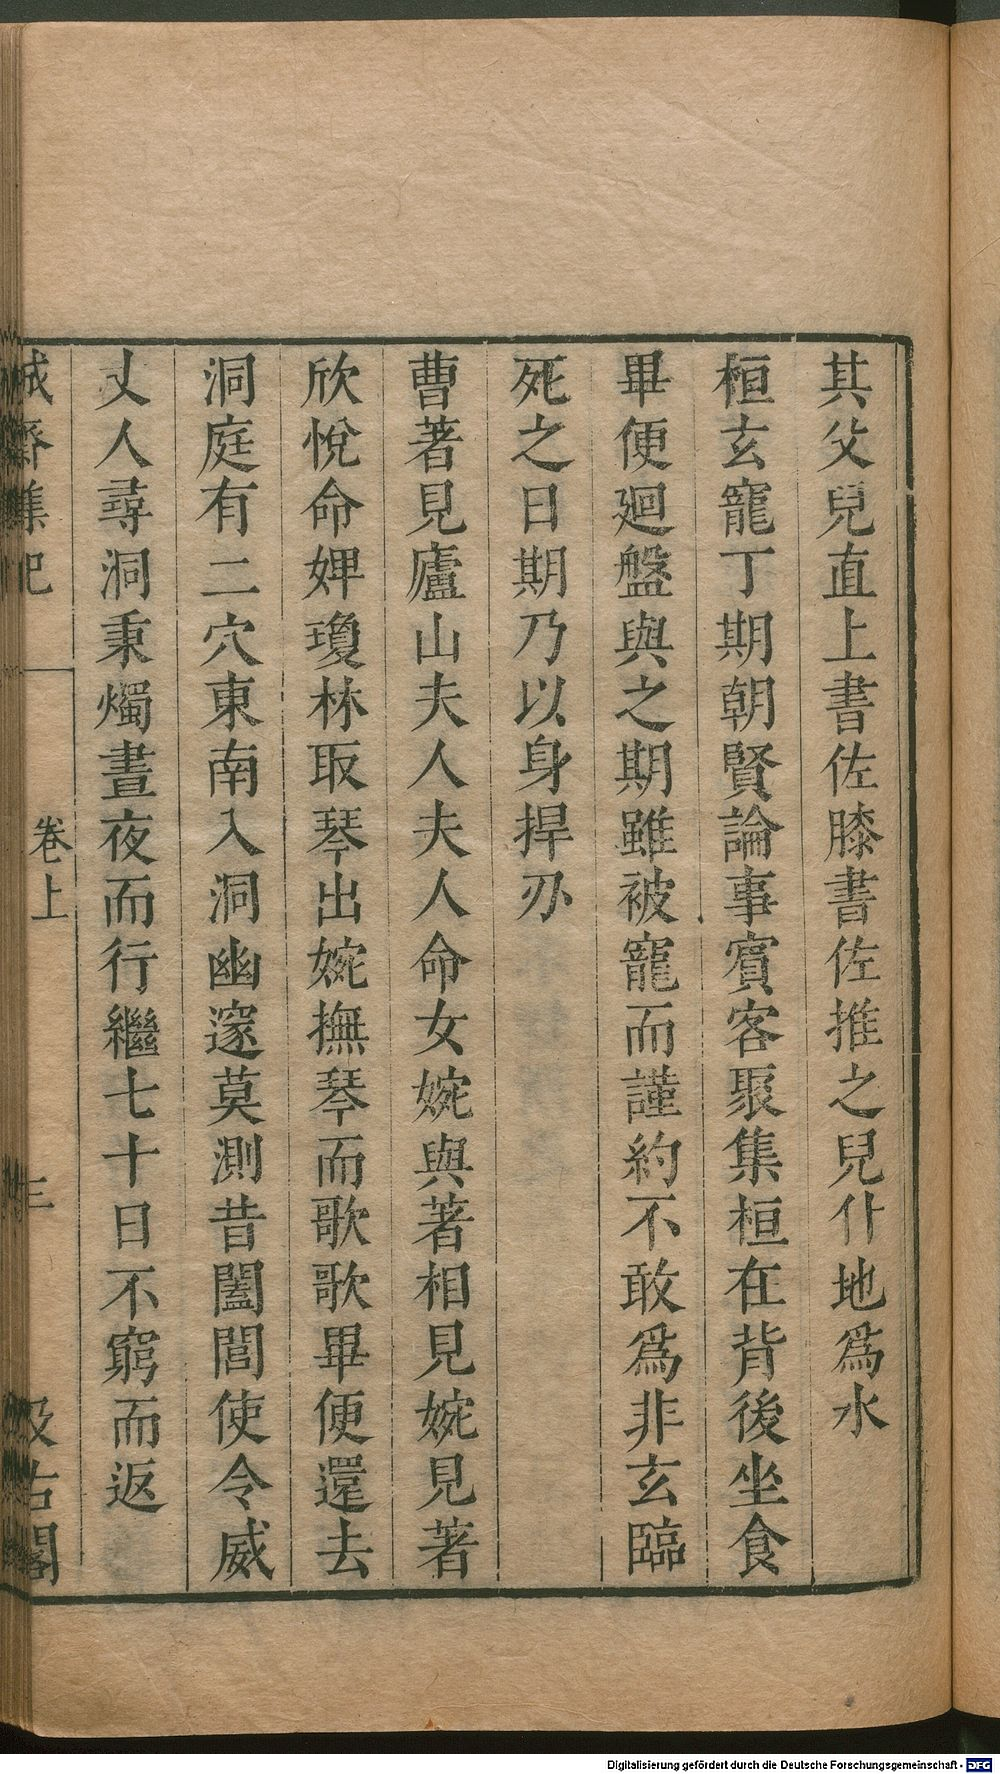 其父兒直上書佐膝書佐推之兒仆地爲水
桓玄寵丁期朝賢論事賓客聚集桓在背後坐食
畢便廻盤與之期雖被寵而謹約不敢爲非玄臨
死之日期乃以身捍刃
曹著見廬山夫人夫人命女婉與著相見婉見著
欣悅命婢瓊林取琴出婉撫琴而歌歌畢便還去
洞庭有二穴東南入洞幽邃莫測昔闔閭使令威
丈人尋洞秉燭晝夜而行繼七十日不窮而返
卷上
三
汲古閣
Digitalisierung gefördert durch die Deutsche Forschungsgemeinschaft - DFG